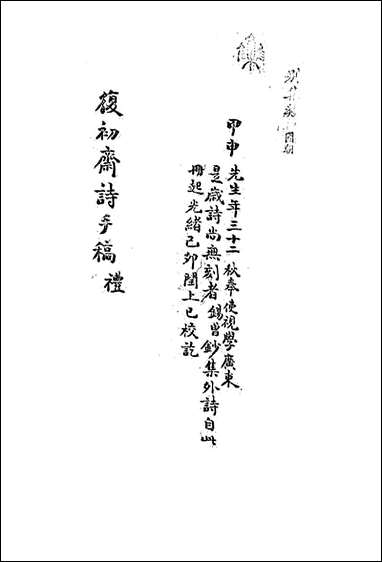 甲申 先生年三十二 秋奉使視學廣東
是歲詩尚無刻者 錫曾鈔集外詩自此
冊起 光緒己卯閏上巳校訖
復初齋詩手稿 禮